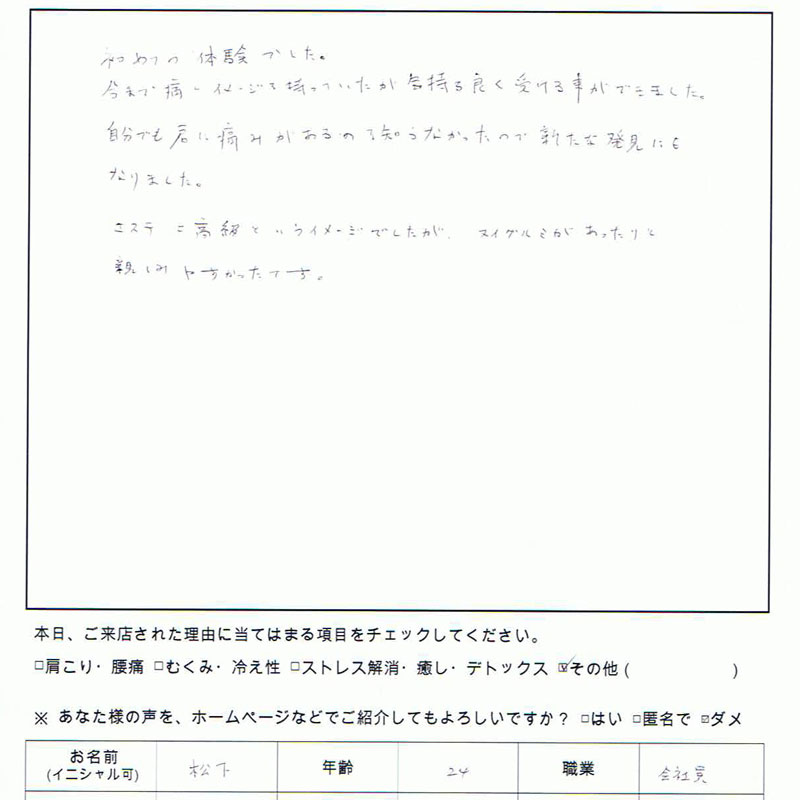 初めての体験でした。
今まで痛いイメージを持っていたが気持ち良く受ける事ができました。
自分でも肩に痛みがあるのを知らなかったので新たな発見にも
なりました。
エステ＝高級というイメージでしたが、ヌイグルミがあったりと
親しみやすかったです。
本日、ご来店された理由に当てはまる項目をチェックしてください。
□肩こり・腰痛 □むくみ・冷え性 □ストレス解消・癒し・デトックス ☑その他 ( )
※ あなた様の声を、ホームページなどでご紹介してもよろしいですか？ □はい □匿名で ☑ダメ
お名前 松下 年齢 24 職業 会社員
(イニシャル可)